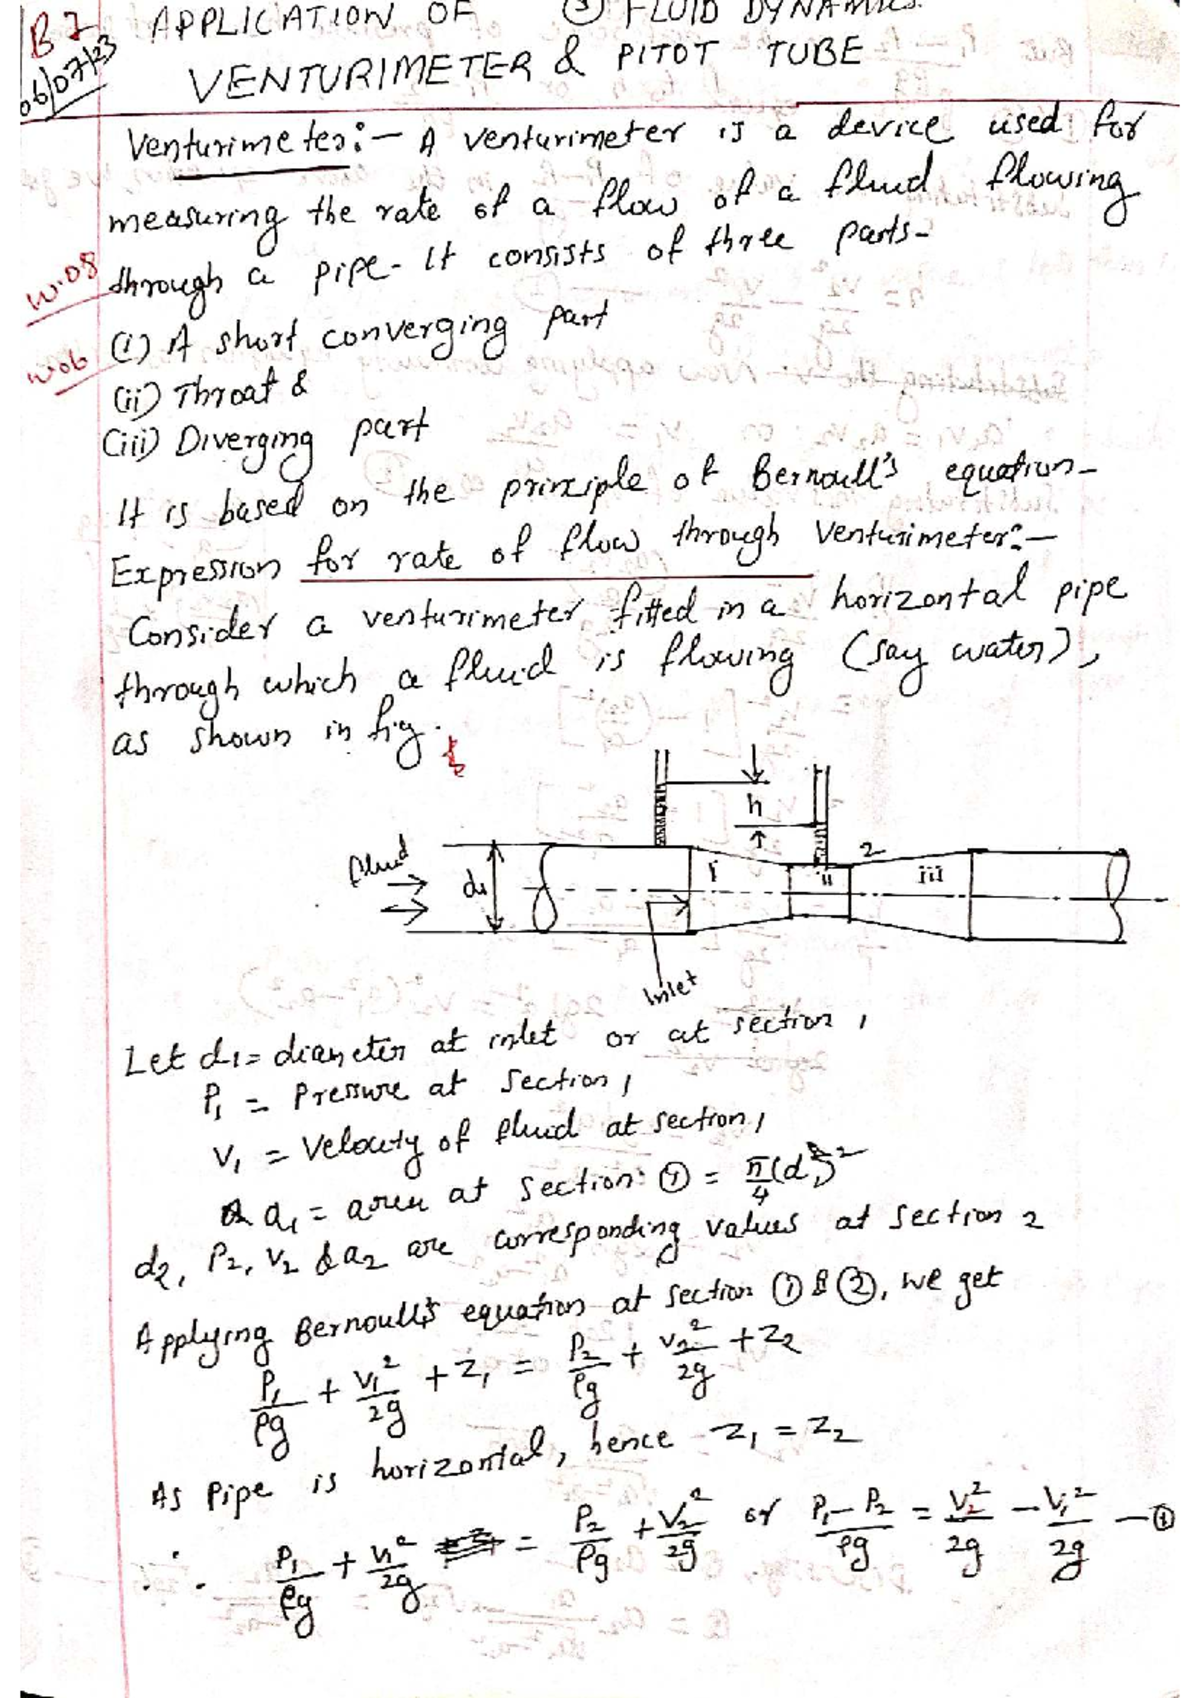 B7
06/07/23
APPLICATION OF (3) FLUID DYNAMICS
VENTURIMETER & PITOT TUBE
Venturimeter:- A venturimeter is a device used for
measuring the rate of a flow of a fluid flowing
W.08
through a pipe. It consists of three parts-
W06
(i) A short converging part
(ii) Throat &
(iii) Diverging part
It is based on the principle of Bernoull's equation-
Expression for rate of flow through Venturimeter:-
Consider a venturimeter fitted in a horizontal pipe
through which a fluid is flowing (say water),
as shown in fig.
h
Fluid
d1
i
ii
2
iii
Inlet
Let d1 = diameter at inlet or at section 1
P1 = Pressure at section 1
V1 = Velocity of fluid at section 1
a1 = area at section ① = π/4 (d1)²
d2, P2, V2 & a2 are corresponding values at section 2
Applying Bernoull's equation at section ① & ②, we get
P1/ρg + V1²/2g + Z1 = P2/ρg + V2²/2g + Z2
As Pipe is horizontal, hence Z1 = Z2
∴ P1/ρg + V1²/2g = P2/ρg + V2²/2g or P1-P2/ρg = V2²/2g - V1²/2g -①